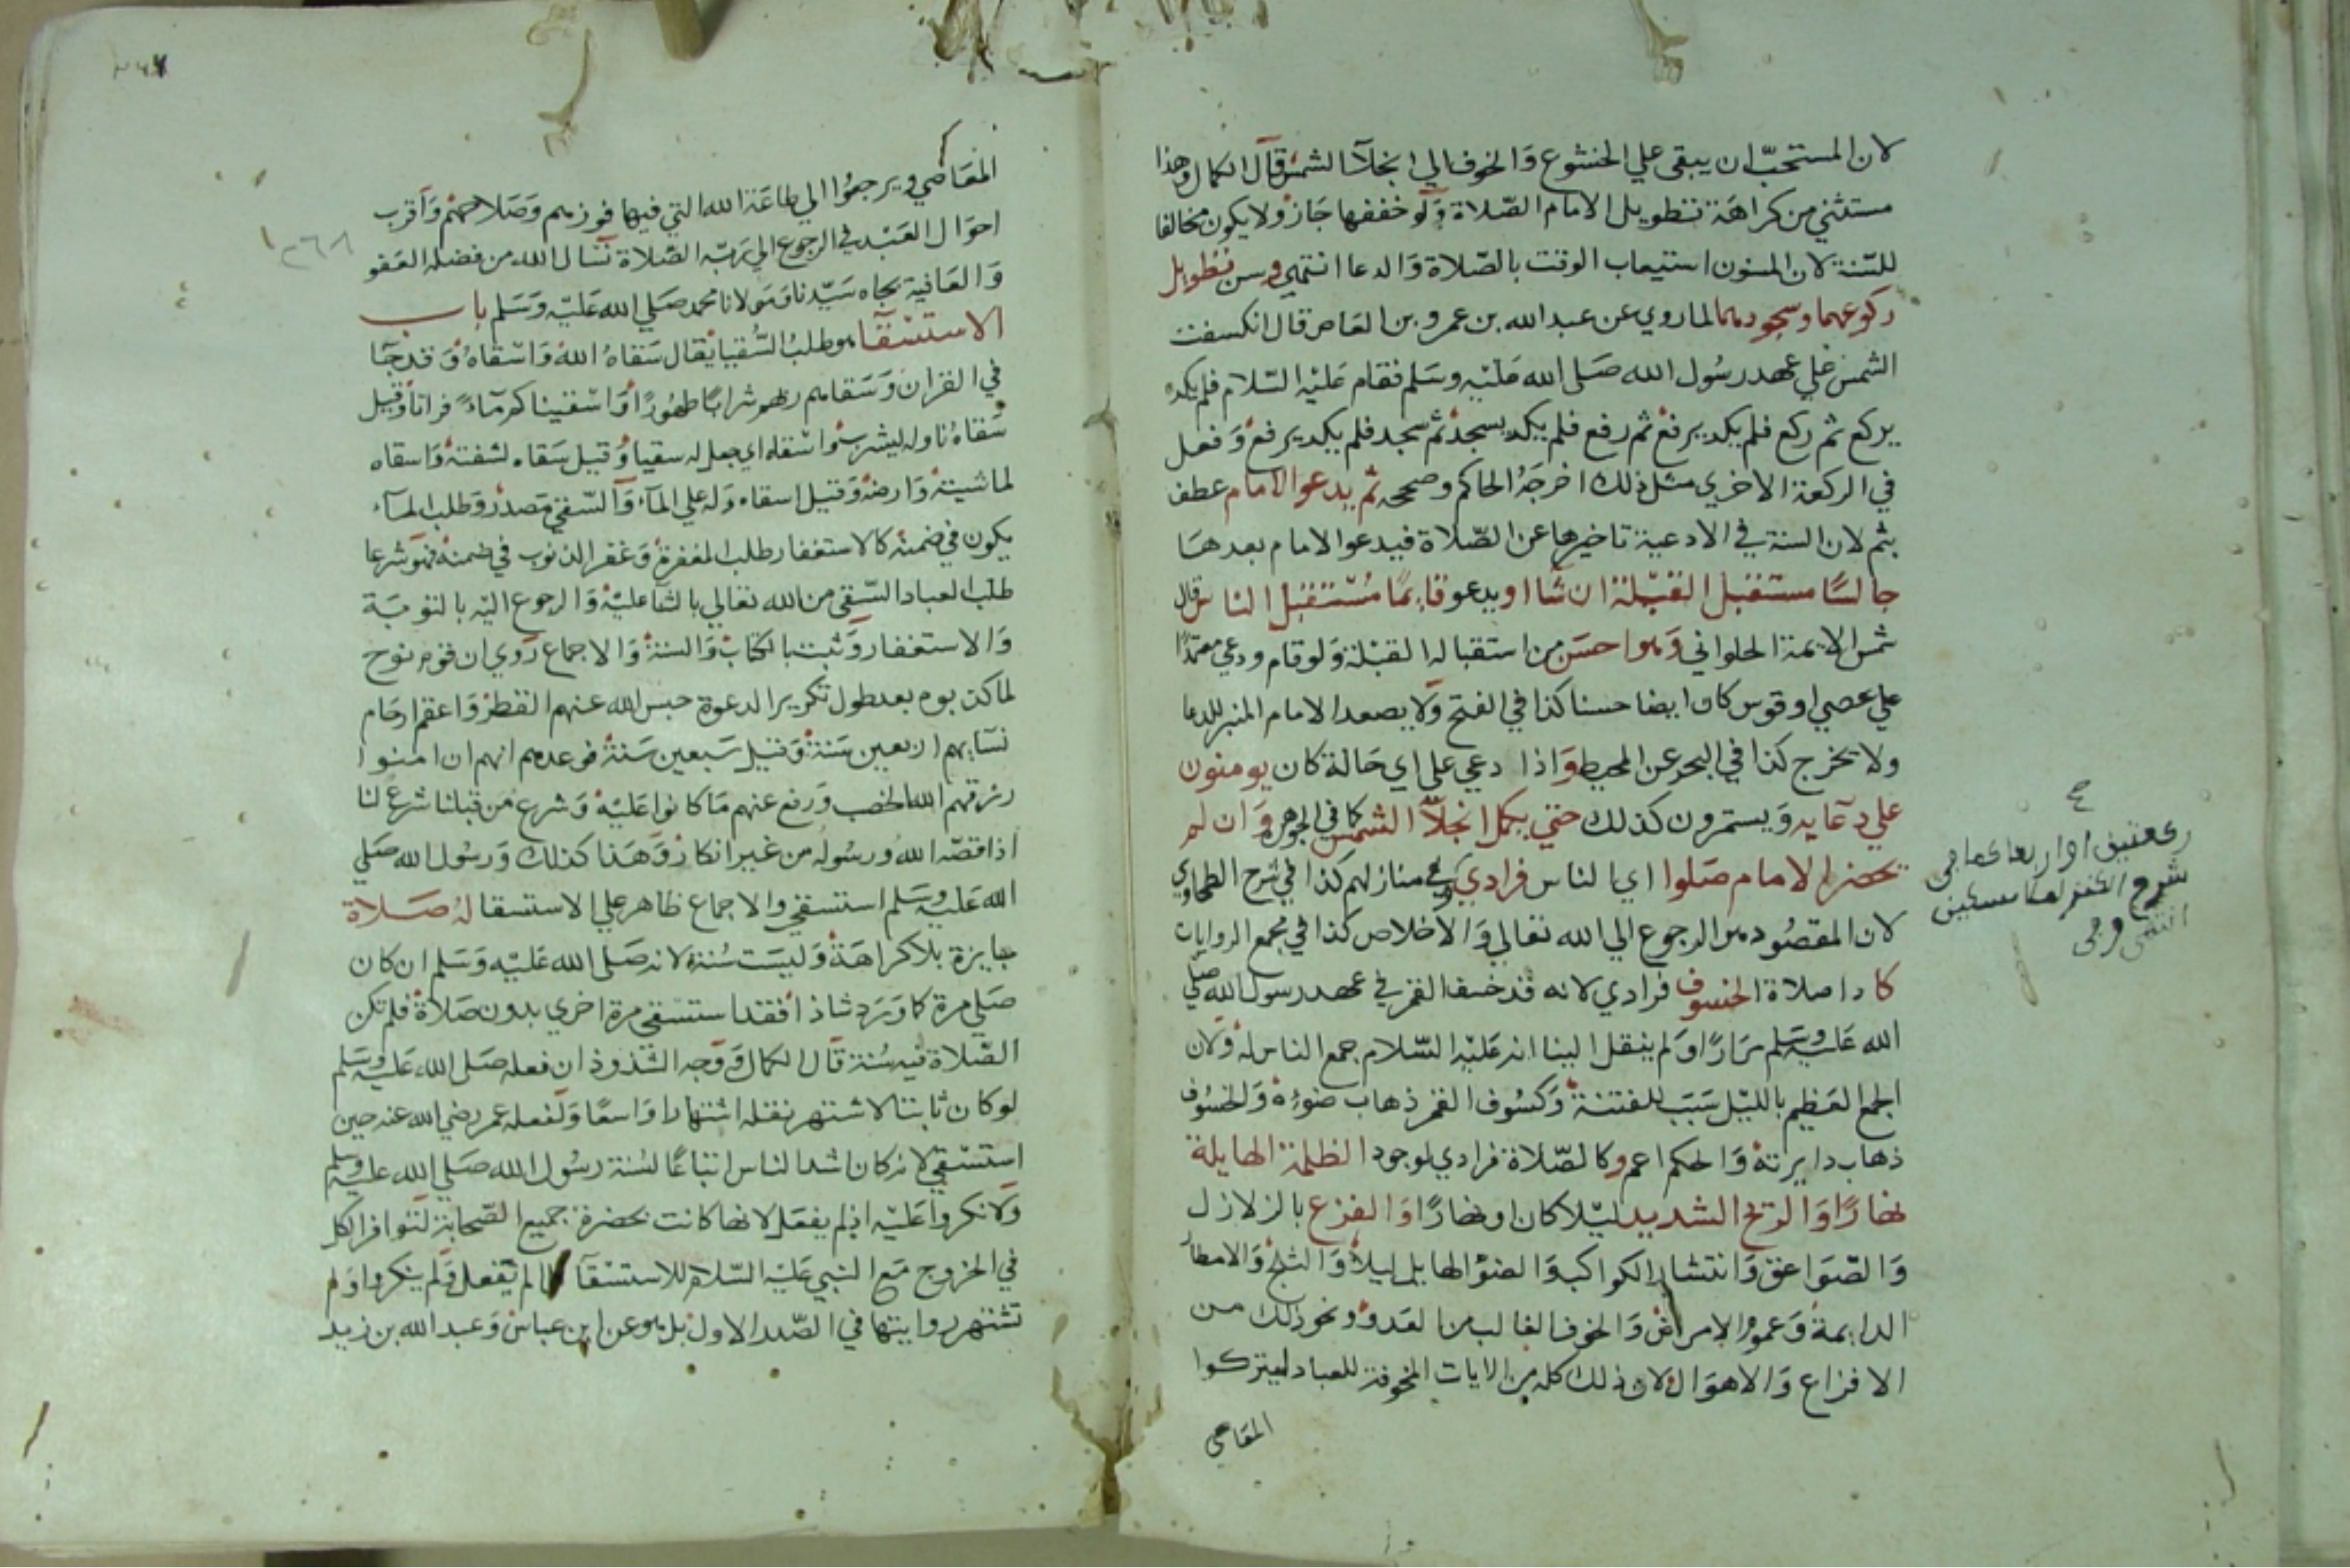 لان المستحبّ ان يبقى علي الخشوع وَالخوف الي انجلآ الشمس قال الكمال وهذا
مستثني من كراهَة تطويل الامام الصّلاة وَلو خففها جَاز ولا يكون مخالفا
للسّنة لان المسنون استيعاب الوقت بالصّلاة وَالدعا انتهي وسن تطويل
ركوعهما وسجودهما لما روي عن عبد الله بن عمرو بن العاص قال انكسفت
الشمس علي عهد رسُول الله صَلى الله عَليْه وسَلم فقام عَليْه السّلام فلم يكد
يركع ثم ركع فلم يكد يرفع ثم رفع فلم يكد يسجد ثم سجد فلم يكد يرفع وَفعل
في الركعة الاخري مثل ذلك اخرجَهُ الحاكم وصححه ثم يدعو الامام عطف
بثم لان السنة في الادعية تاخيرها عن الصّلاة فيدعوا الامام بعدهَا
جالسًا مستقبل القبْلة ان شَا او يدعو قائمًا مُسْتقبل الناس قال
شمس الايمة الحلواني وَهوا حسَن من استقباله القبْلة وَلو قام ودعي معتمدًا
علي عصي او قوس كان ايضا حسنا كذا في الفتح وَلا يصعد الامام المنبر للدعا
ولا يخرج كذا في البحر عن المحيط وَاذا دعي علي اي حَالة كان يومنون
علي دعَايه وَيستمرون كذلك حتي يكمل انجلآ الشمس كما في الجوهرة وَان لم
يحضر الامام صَلوا اي الناس فرادي في منازلهم كذا في شرح الطحاوي
لان المقصُود هو الرجوع الي الله تعَالي وَالاخلاص كذا في مجمع الروايات
كاداء صلاة الخسوف فرادي لانه قد خسف القمر في عهد رسول الله صلي
الله عَليْه وسَلم مرَارًا وَلم ينقل الينا انه عَليْه السّلام جمع الناس له وَلان
الجمع العَظيم بالليْل سَبَب للفتنة وَكسُوف القمر ذهاب ضوءه وَالخسُوف
ذهاب دايرته وَالحكم اعم وكالصّلاة فرادي لوجود الظلمة الهايلة
نهارًا وَالريح الشديد ليْلا كان او نهارًا وَالفزع بالزلازل
وَالصّوَاعق وَانتشار الكواكب وَالضوْ الهايل ليلا وَالثلج وَالامطار
الدايمة وَعموم الامراض وَالخوف الغالب من العَدو ونحو ذلك من
الافزاع وَالاهوَال لان ذلك كله من الايات المخوفة للعباد ليتركوا
المعَاصي
ركعتين او اربعا كما في
شرح الكنز لملا مسكين
انتهى
٢٦٨
المعَاصي ويرجعُوا الي طاعَة الله التي فيها فوزهم وَصَلاحهم وَاقرب
احوَال العَبْد في الرجوع الي رَبّه الصّلاة نسَال الله من فضله العَفو
وَالعَافية بجاه سَيّدنا وَمَولانا محمد صَلي الله عَليْه وَسَلم باب
الاستسْقآ هو طلبُ السُّقيا يقال سَقاهُ اللهُ وَاسْقاهُ وَقد جَا
في القران وَسَقاهم ربهم شرابًا طهُورًا وَاسْقينَاكم مَاءً فراتا وَقيل
سَقاهُ ناوله ليشرب وَاسْقاه اي جعل له سقيا وَقيل سَقاه لشفته وَاسقاه
لماشيته وَارضه وَقيل اسقاه دَله علي المآء وَالسّقي مَصدر وَطلب المآء
يكون في ضمنه كالاستغفار طلب المغفرة وَغفر الذنوب في ضمنه فهوَ شرعا
طلب العباد السّقي من الله تعَالي بالثنا عليْه وَالرجوع اليْه بالتوبَة
وَالاستغفار وَثبت بالكتاب وَالسنة وَالاجماع رُوي ان قوم نوح
لما كذبوه بعد طول تكرير الدعوة حبس الله عنهم القطر وَاعقم ارحَام
نسَايهم اربعين سَنة وَقيل سَبعين سَنة فوعدهم انهم ان امنوا
رزقهم الله الخصب وَرفع عنهم مَا كانوا عَليْه وَشرع مَن قبلنا شرع لنا
اذا قصّه الله ورسُوله من غير انكار وَهَذا كذلك وَرسُول الله صَلي
الله عَليْه وسَلم استسقي والاجماع ظاهر علي الاستسقا لهُ صَلاة
جايزة بلا كراهَة وَليسَت سُنة لانه صَلي الله عَليْه وَسَلم ان كان
صَلي مرة كما وَرَد شاذا فقد استسْقي مرة اخري بدون صَلاة فلم تكن
الصّلاة فيه سُنة قال الكمال وَوَجه الشذوذ ان فعله صَلي الله عَليْه وسَلم
لو كان ثابتا لاشتهر نقله اشتهارا وَاسعًا وَلفعله عمر رضي الله عنه حين
استسْقي لانه كان اشد الناس اتباعًا لسُنة رسُول الله صَلي الله عليْه وسلم
وَلانكروا عَليْه اذ لم يفعَل لانها كانت بحضرة جميع الصّحابة لتوافر الكل
في الخروج مَع النبي عَليْه السّلام للاستسْقآ فلما لم يفعل وَلم ينكروا وَلم
تشتهر روايتها في الصّدر الاول بل هو عن ابن عباس وَعبد الله بن زيد